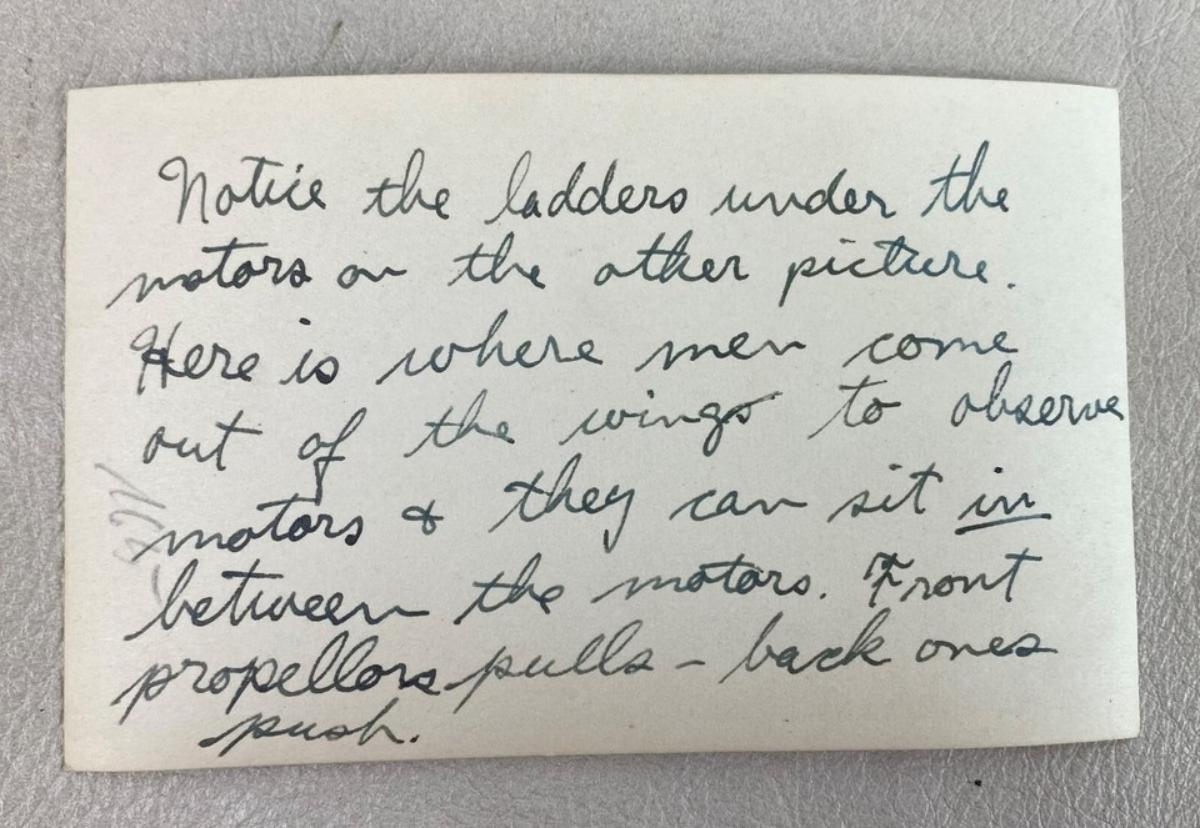 Notice the ladders under the
motors on the other picture.
Here is where men come
out of the wings to observe
motors & they can sit in
between the motors. Front
propellors pulls - back ones
push.